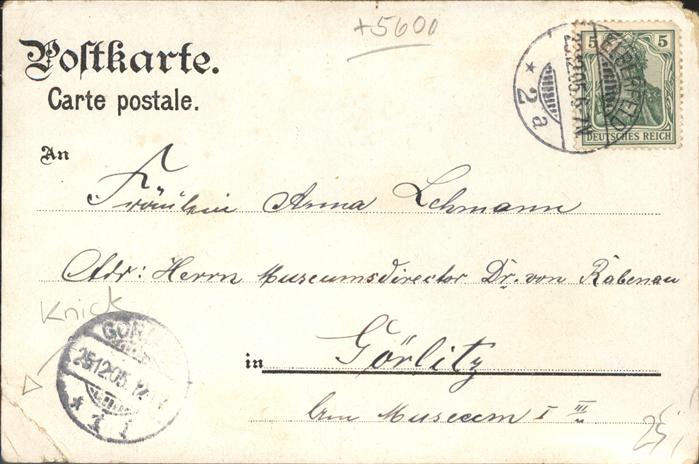 +5600
Postkarte.
Carte postale.
5 5
DEUTSCHES REICH
ELBERFELD
* 2 a
An
Fräulein Anna Lehmann
Adr: Herrn Museumsdirector Dr. von Rabenau
Knick
25.12.05
* 1 i
in Görlitz
Museum I III
25,-